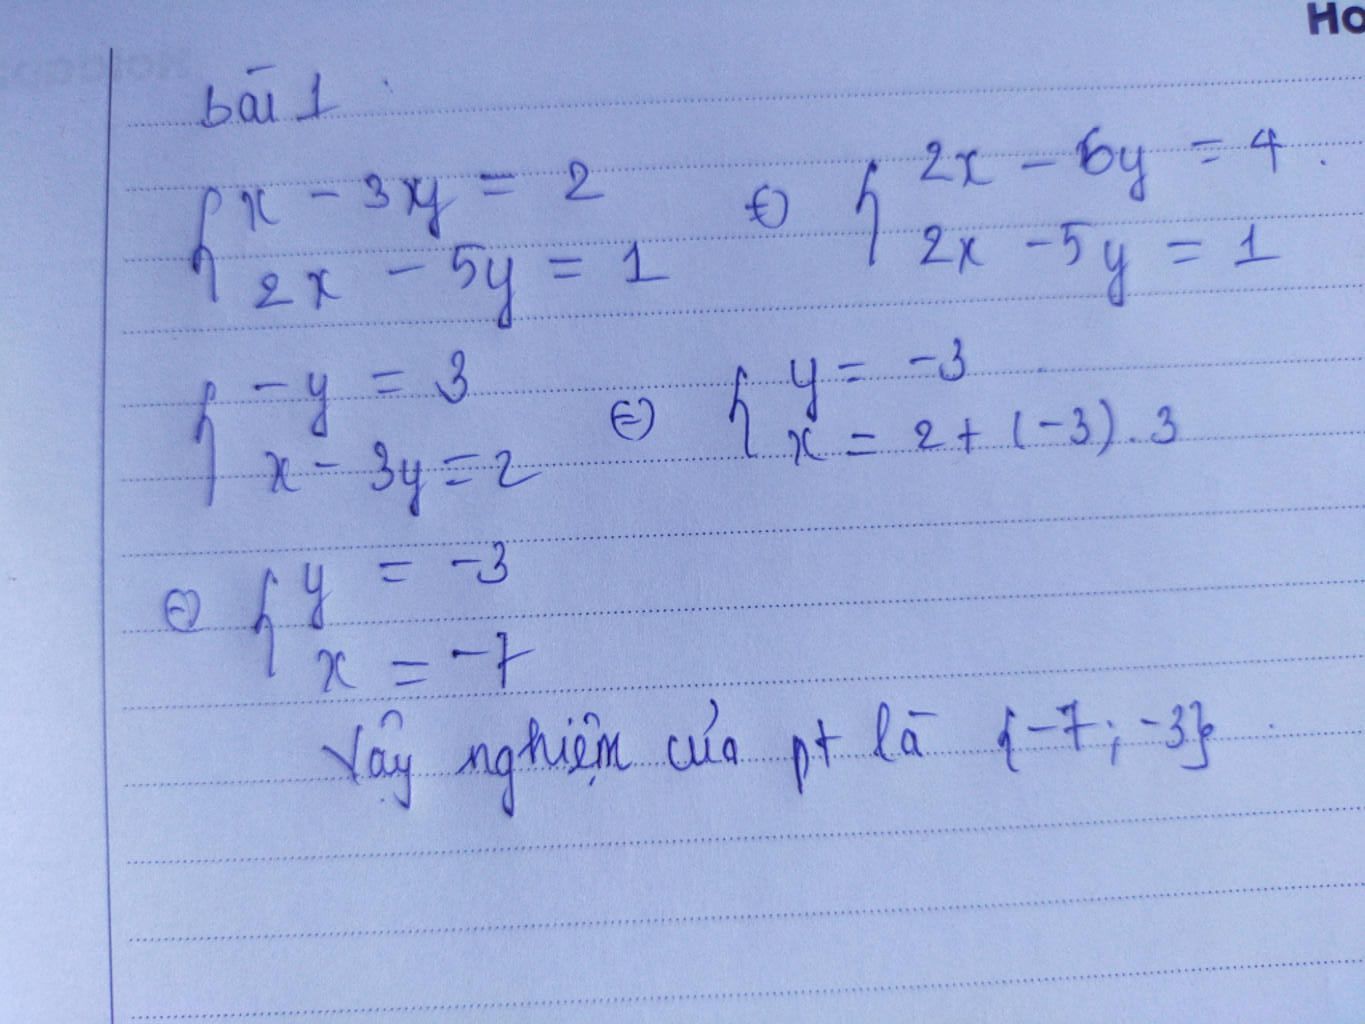 Ho
bài 1
{ x - 3xy = 2 ⇔ { 2x - 6y = 4
2x - 5y = 1 2x - 5y = 1
{ -y = 3 ⇔ { y = -3
x - 3y = 2 x = 2 + (-3).3
⇔ { y = -3
x = -7
Vậy nghiệm của pt là {-7; -3}